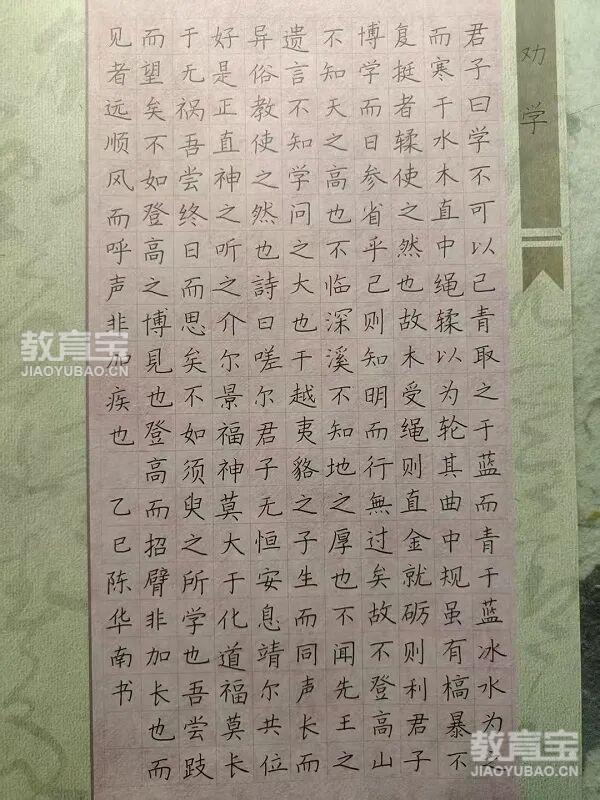 劝学
君子曰学不可以已青取之于蓝而青于蓝冰水为之
而寒于水木直中绳𫐓以为轮其曲中规虽有槁暴不
复挺者𫐓使之然也故木受绳则直金就砺则利君子
博学而日参省乎己则知明而行無过矣故不登高山
不知天之高也不临深溪不知地之厚也不闻先王之
遗言不知学问之大也干越夷貉之子生而同声长而
异俗教使之然也詩曰嗟尔君子无恒安息靖尔共位
好是正直神之听之介尔景福神莫大于化道福莫长
于无祸吾尝终日而思矣不如须臾之所学也吾尝跂
而望矣不如登高之博見也登高而招臂非加长也而
见者远顺风而呼声非加疾也 乙巳陈华南书
教育宝
JIAOYUBAO.CN
教育宝
JIAOYUBAO.CN